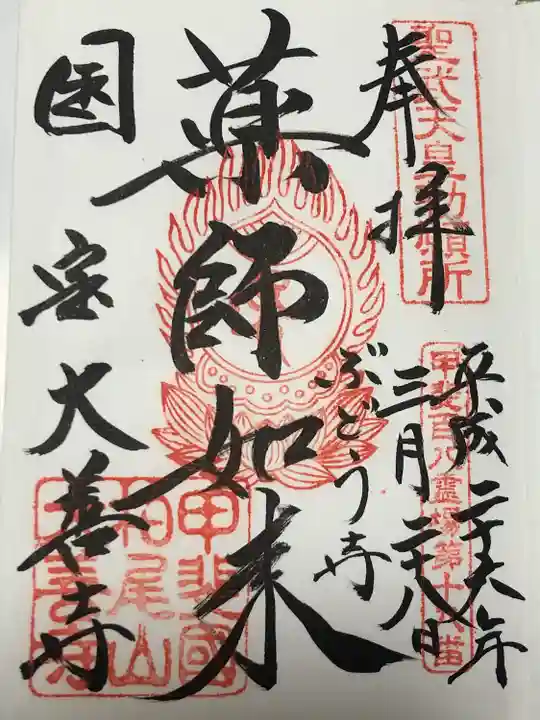 聖武天皇勅願所
奉拝
甲斐百八霊場第十八番
平成二十六年
三月二十八日
ぶどう寺
薬師如来
国宝大善寺
甲斐國
柏尾山
大善寺